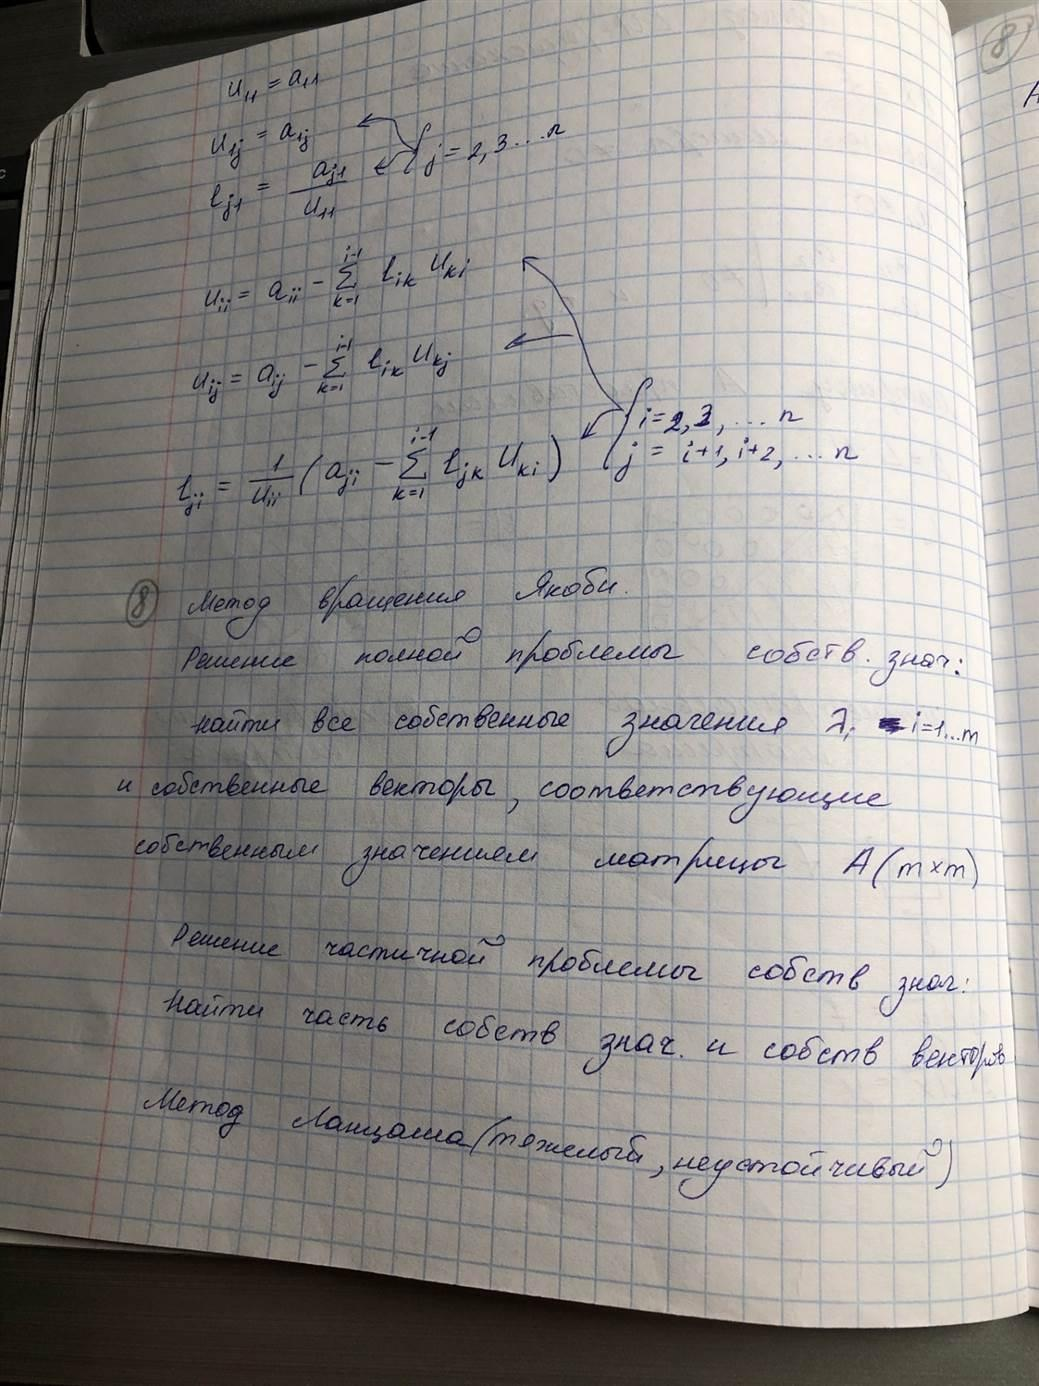 u₁₁ = a₁₁
u₁ⱼ = a₁ⱼ
lⱼ₁ = aⱼ₁ / u₁₁
j = 2, 3 ... n
uᵢᵢ = aᵢᵢ − Σ_{k=1}^{i-1} lᵢₖ uₖᵢ
uᵢⱼ = aᵢⱼ − Σ_{k=1}^{i-1} lᵢₖ uₖⱼ
lⱼᵢ = 1/uᵢᵢ (aⱼᵢ − Σ_{k=1}^{i-1} lⱼₖ uₖᵢ)
i = 2, 3, ... n
j = i+1, i+2, ... n
8 Метод вращения Якоби.
Решение полной проблемы собств. знач:
найти все собственные значения λᵢ i=1...m
и собственные векторы, соответствующие
собственным значениям матрицы A (m×m)
Решение частичной проблемы собств знач:
Найти часть собств знач. и собств векторов
Метод Ланцоша (тяжелый, неустойчивый)
8